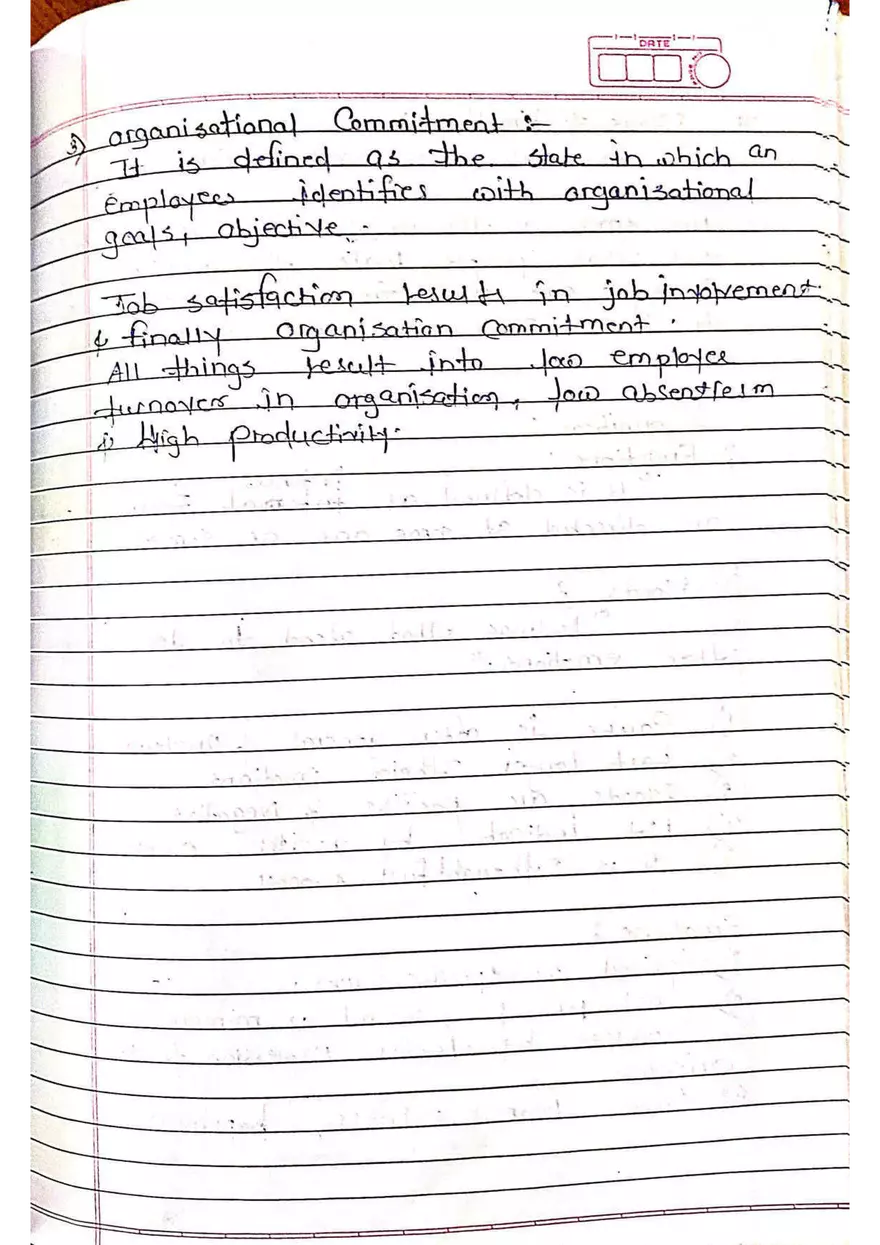 DATE
3) organisational Commitment :-
It is defined as the state in which an
employees identifies with organisational
goals, objective.
Job satisfaction results in job involvement
& finally organisation commitment.
All things result into low employee
turnover in organisation, low absenteeism
& High productivity.